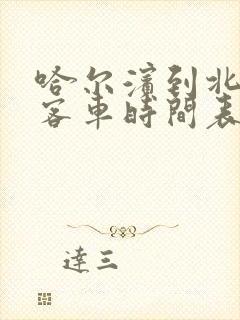 哈尔滨到北
客車時間表
達三